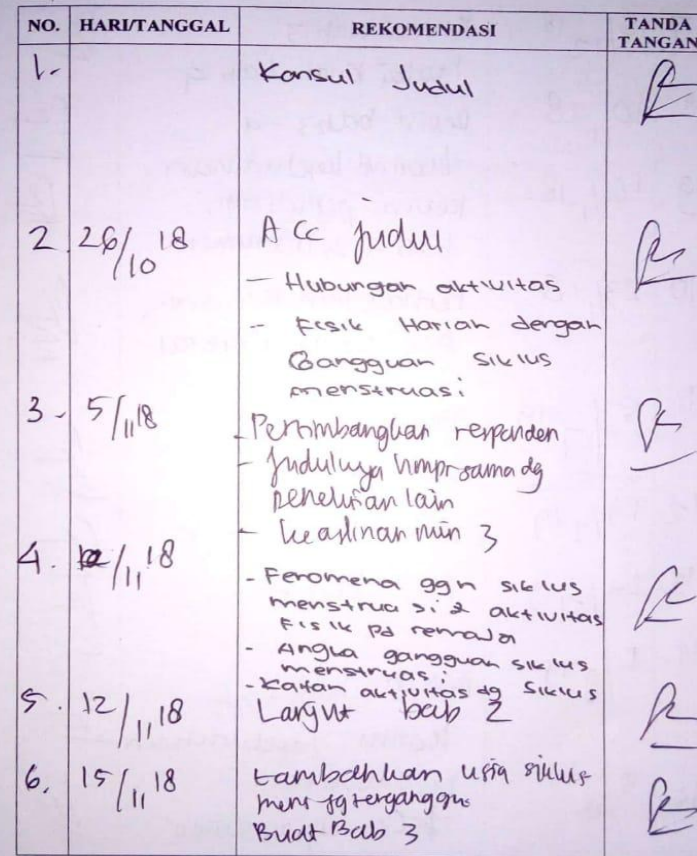 NO. HARI/TANGGAL REKOMENDASI TANDA TANGAN
1. Konsul Judul
2. 26/10 18 Acc Judul
- Hubungan aktivitas
- Fisik Harian dengan
Gangguan Siklus
menstruasi
3. 5/11 18
- Pertimbangkan responden
- Judulnya hmpr sama dg
penelitian lain
- keaslinan min 3
4. /11 18
- Feromena ggn siklus
menstruasi & aktivitas
Fisik pd remaja
- Angka gangguan siklus
menstruasi
- Kaitan aktivitas dg siklus
5. 12/11 18 Lanjut bab 2
6. 15/11 18 tambahkan usia siklus
mens yg terganggu
Buat Bab 3